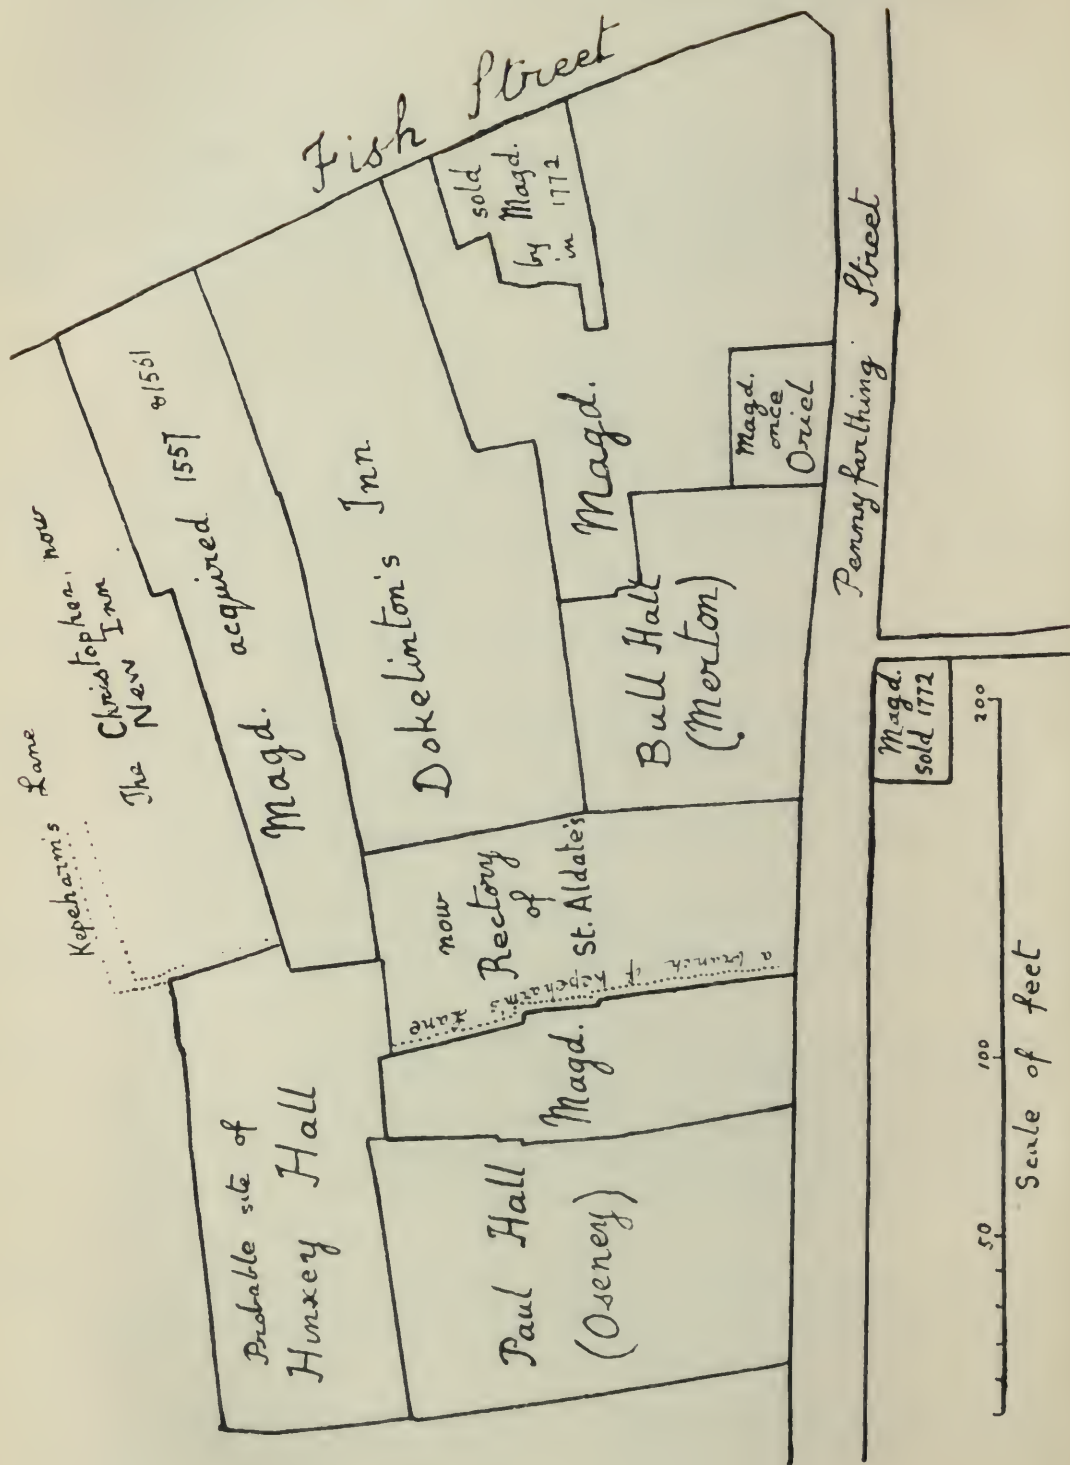 Fish Street
Kepeharm's Lane
The Christopher, now
New Inn
Magd. acquired 1557 & 1551
Dokelinton's Inn
sold
by Magd.
in 1772
Magd.
Magd.
once
Oriel
Bull Hall
(Merton)
Pennyfarthing Street
Magd.
sold 1772
now
Rectory
of
St. Aldate's
a branch of Kepeharm's Lane
Magd.
Probable site of
Hinxey Hall
Paul Hall
(Oseney)
50 100 200
Scale of feet